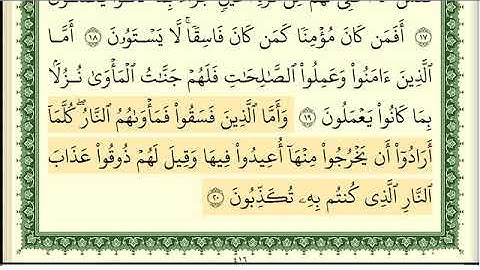 ١٧ أَفَمَن كَانَ مُؤْمِنًا كَمَن كَانَ فَاسِقًا ۚ لَّا يَسْتَوُۥنَ ١٨ أَمَّا
ٱلَّذِينَ ءَامَنُوا۟ وَعَمِلُوا۟ ٱلصَّـٰلِحَـٰتِ فَلَهُمْ جَنَّـٰتُ ٱلْمَأْوَىٰ نُزُلًۢا
بِمَا كَانُوا۟ يَعْمَلُونَ ١٩ وَأَمَّا ٱلَّذِينَ فَسَقُوا۟ فَمَأْوَىٰهُمُ ٱلنَّارُ ۖ كُلَّمَآ
أَرَادُوٓا۟ أَن يَخْرُجُوا۟ مِنْهَآ أُعِيدُوا۟ فِيهَا وَقِيلَ لَهُمْ ذُوقُوا۟ عَذَابَ
ٱلنَّارِ ٱلَّذِى كُنتُم بِهِۦ تُكَذِّبُونَ ٢٠
٤١٦